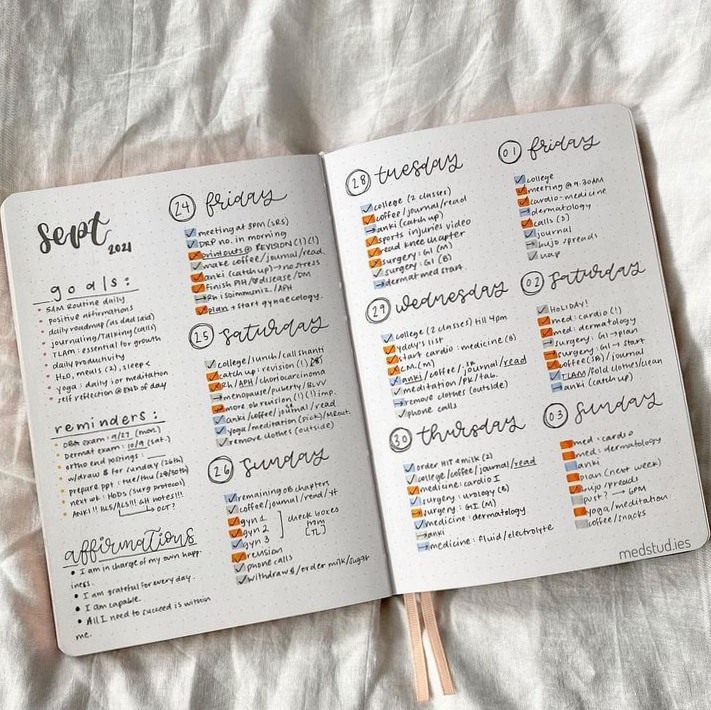 sept
2021
goals:
5AM Routine daily
positive affirmations
daily roadmap (as dad said)
journaling/Talking (calls)
TLAM: essential for growth
daily productivity
H₂O, meals (2), sleep <
yoga: daily :or meditation
self reflection @ END of day
reminders:
OBG exam: 9/27 (mon.)
dermat exam: 10/9 (sat.)
ortho end postings:
w/draw $ for sunday (26th)
prepare ppt: tue/thu (28/30th)
next wk: HoDs (surg protocol)
ANKI!! RLS/ALS!! GH NOTES!!!
OCT?
affirmations
I am in charge of my own happ-
iness.
I am grateful for every day.
I am capable.
All I need to succeed is within
me.
24 friday
meeting at 5PM (SRS)
DRP no. in morning
printouts @ REVISION (1) (1)
make coffee/journal/read
anki (catch up) → no stress
finish PIH/disease/DM
Rh isoimmuniz./APH
plan + start gynaecology.
25 saturday
college/lunch/call shanti
catch up: revision (1)
Rh/APH/choriocarcinoma
menopause/puberty/BLVV
more ob revision (1) imp.
anki/coffee/journal/read
yoga/meditation (pick)/Meout.
remove clothes (outside)
26 sunday
remaining OB chapters
coffee/journal/read/yt
gyn 1
gyn 2
gyn 3
check boxes
from
[TL]
revision
phone calls
withdraw $/order milk/sugar
28 tuesday
college (2 classes)
coffee/journal/read
anki (catch up)
sports injuries video
read knee chapter
surgery: GI (M)
surgery: GI (B)
dermat med start.
29 wednesday
college (2 classes) till 4pm
yday's list
start cardio: medicine (B)
C.M. (M)
anki/coffee/ journal/read
meditation/pk/tab.
remove clothes (outside)
phone calls
30 thursday
order HIT + milk (2)
college/coffee/journal/read
medicine: cardio I
surgery: urology (B)
surgery: GI I (M)
medicine: dermatology
anki
medicine: fluid/electrolyte
01 friday
college
meeting @ 9.30AM
cardio-medicine
dermatology
calls (3)
journal
bujo spreads
02 saturday
HOLIDAY!
med: cardio (1)
med: dermatology
surgery: GI → plan
surgery: GI → start
coffee (3B)/journal
TLAM/fold clothes/clean
anki (catch up)
03 sunday
med: cardio
med: dermatology
anki
plan (next week)
bujo/spreads
post? → 6PM
yoga/meditation
coffee/snacks
medstud.ies